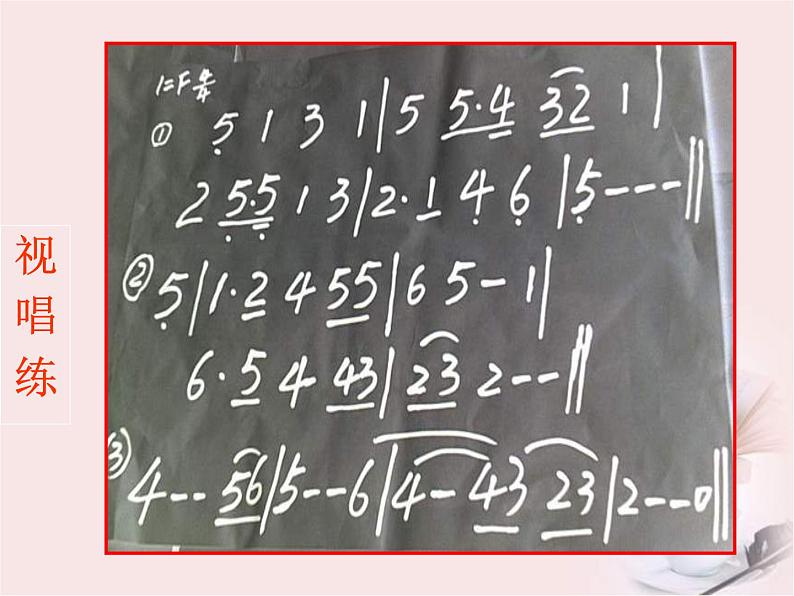 视
唱
练
1=F 4/4
① 5̣ 1 3 1 | 5 5·4 32 1 |
2 5·5 1 3 | 2·1 4 6 | 5---‖
② 5 | 1·2 4 55 | 6 5- 1 |
6·5 4 43 | 23 2--‖
(3) 4-- 56 | 5--6 | 4-43 23 | 2--0‖